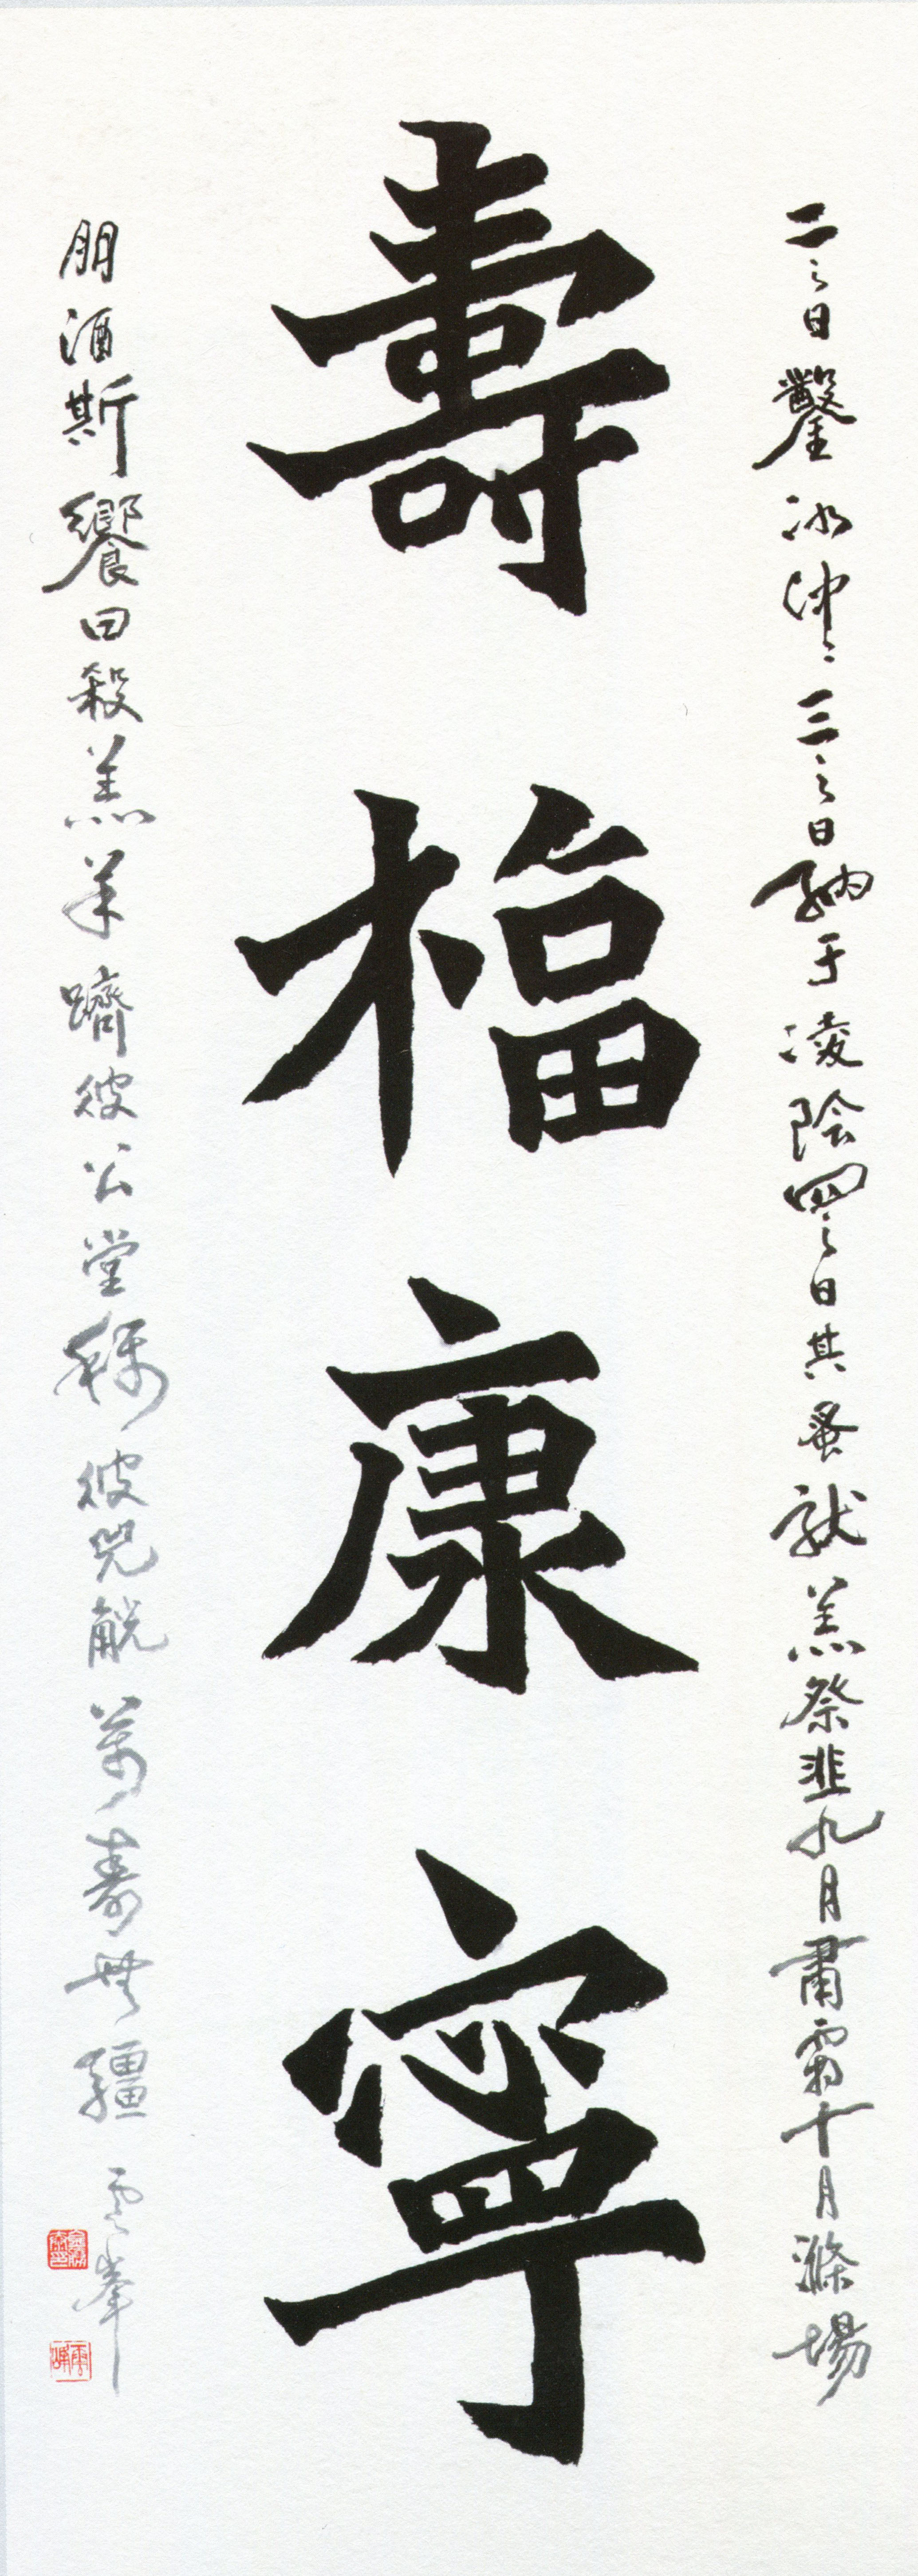 二之日鑿冰沖沖三之日納于凌陰四之日其蚤獻羔祭韭九月肅霜十月滌場
壽福康寧
朋酒斯饗曰殺羔羊躋彼公堂稱彼兕觥萬壽無疆 雲峯